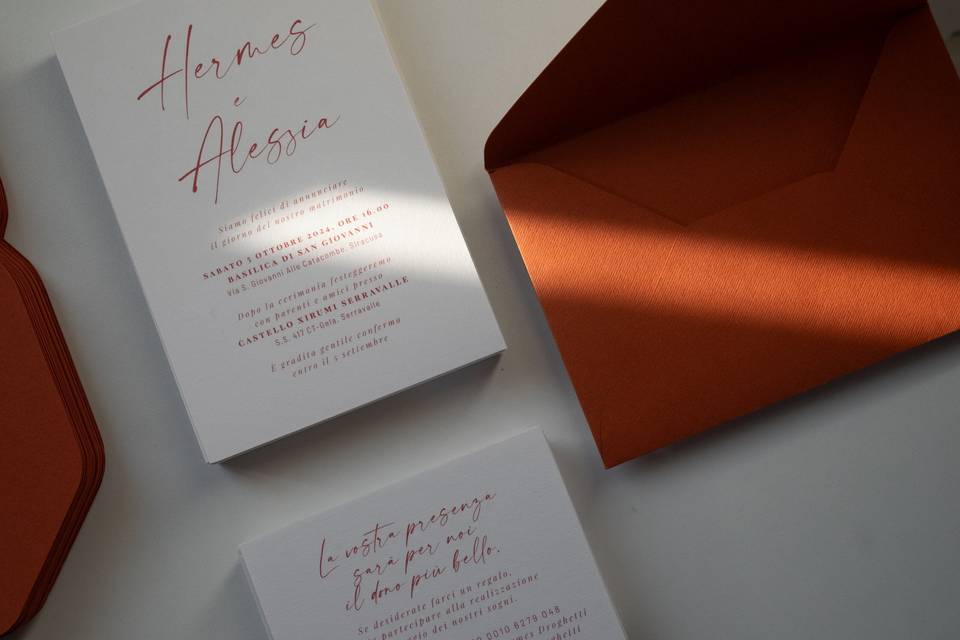 Hermes
e
Alessia
Siamo felici di annunciare
il giorno del nostro matrimonio
SABATO 5 OTTOBRE 2024, ORE 16.00
BASILICA DI SAN GIOVANNI
Via S. Giovanni Alle Catacombe, Siracusa
Dopo la cerimonia festeggeremo
con parenti e amici presso
CASTELLO XIRUMI SERRAVALLE
S.S. 417 CT-Gela, Serravalle
E gradita gentile conferma
entro il 5 settembre
La vostra presenza
sarà per noi
il dono più bello.
Se desiderate farci un regalo,
partecipare alla realizzazione
dei nostri sogni.
0010 6279 048
Droghetti